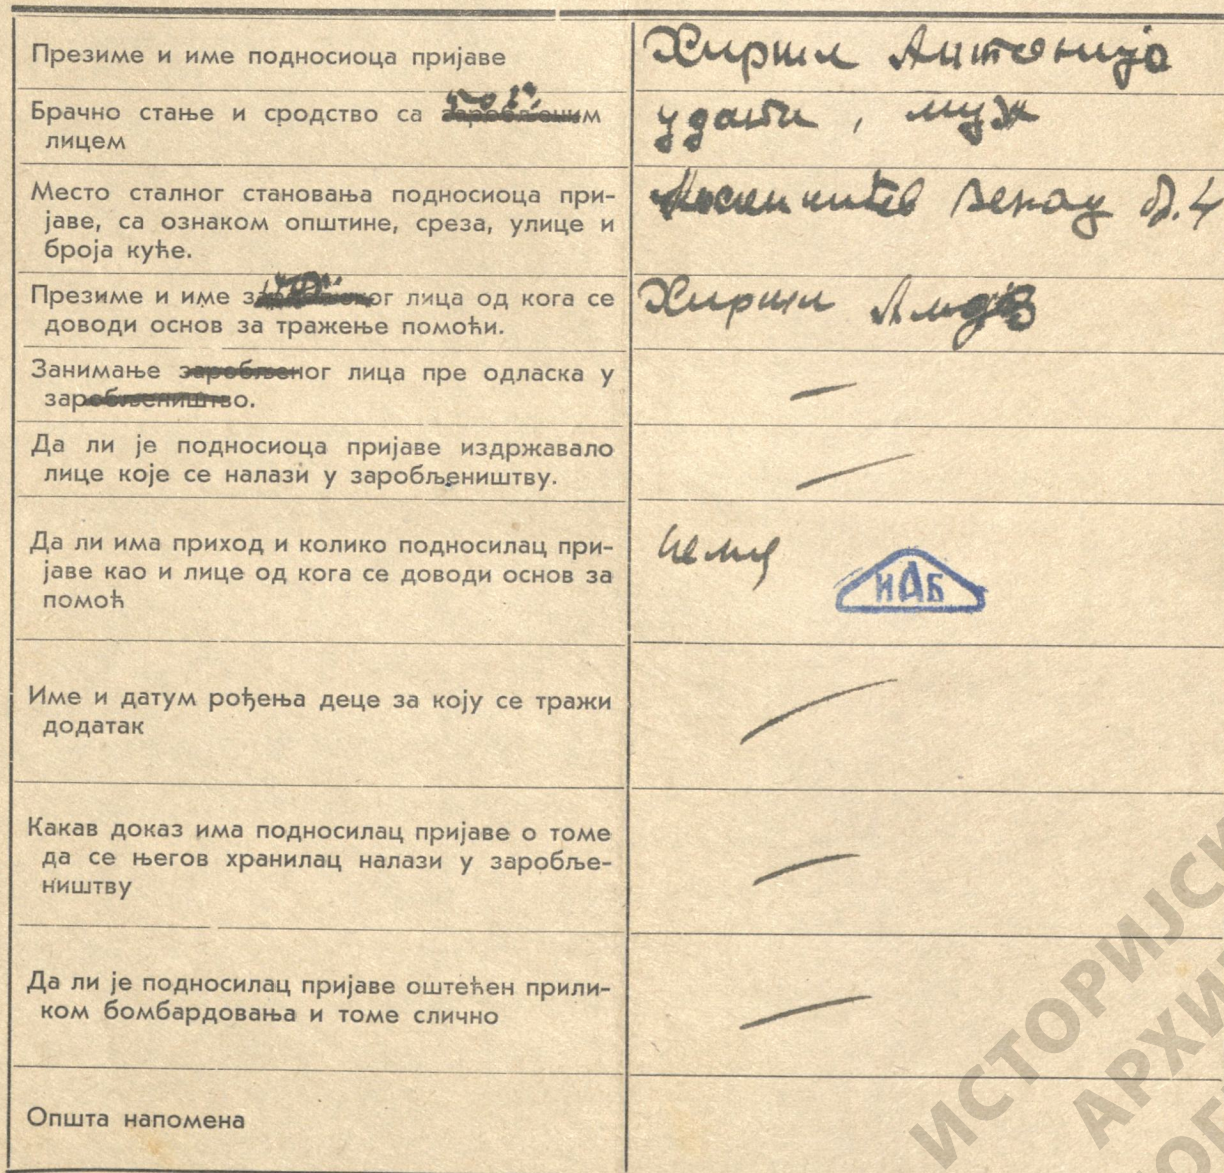 Презиме и име подносиоца пријаве
Хиршл Антонија
Брачно стање и сродство са заробљеним
лицем
удата, муж
Место сталног становања подносиоца при-
јаве, са ознаком општине, среза, улице и
броја куће.
венац б. 4
Презиме и име з ог лица од кога се
доводи основ за тражење помоћи.
Хиршл
Занимање заробљеног лица пре одласка у
заробљеништво.
—
Да ли је подносиоца пријаве издржавало
лице које се налази у заробљеништву.
—
Да ли има приход и колико подносилац при-
јаве као и лице од кога се доводи основ за
помоћ
нема
ИАБ
Име и датум рођења деце за коју се тражи
додатак
—
Какав доказ има подносилац пријаве о томе
да се његов хранилац налази у заробље-
ништву
—
Да ли је подносилац пријаве оштећен прили-
ком бомбардовања и томе слично
—
Општа напомена